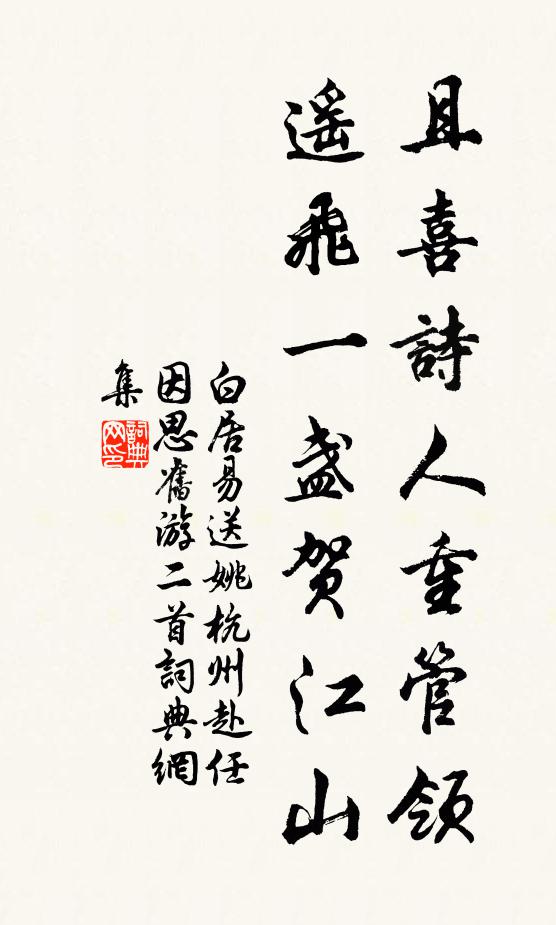 且喜詩人重管領
遥飛一盞賀江山
白居易送姚杭州赴任
因思舊游二首詞典網
集
詞典
网印